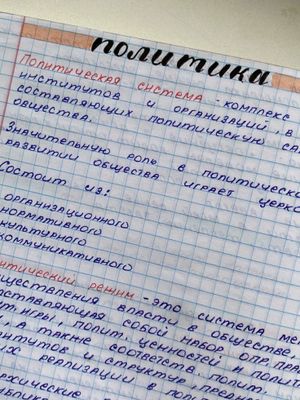 политика
Политическая система - комплекс
институтов и организаций, в
составляющих политическую са
общества.
Значительную роль в политическо
развитии общества играет церко
Состоит из:
организационного
нормативного
культурного
коммуникативного
итический режим - это система ме
ществления власти в обществе,
ставляющая собой набор опр. прав
игры, полит. ценностей и полит
, а также соответств. полит.
титутов и структур, предна
их реализации в полит
рхические
блик